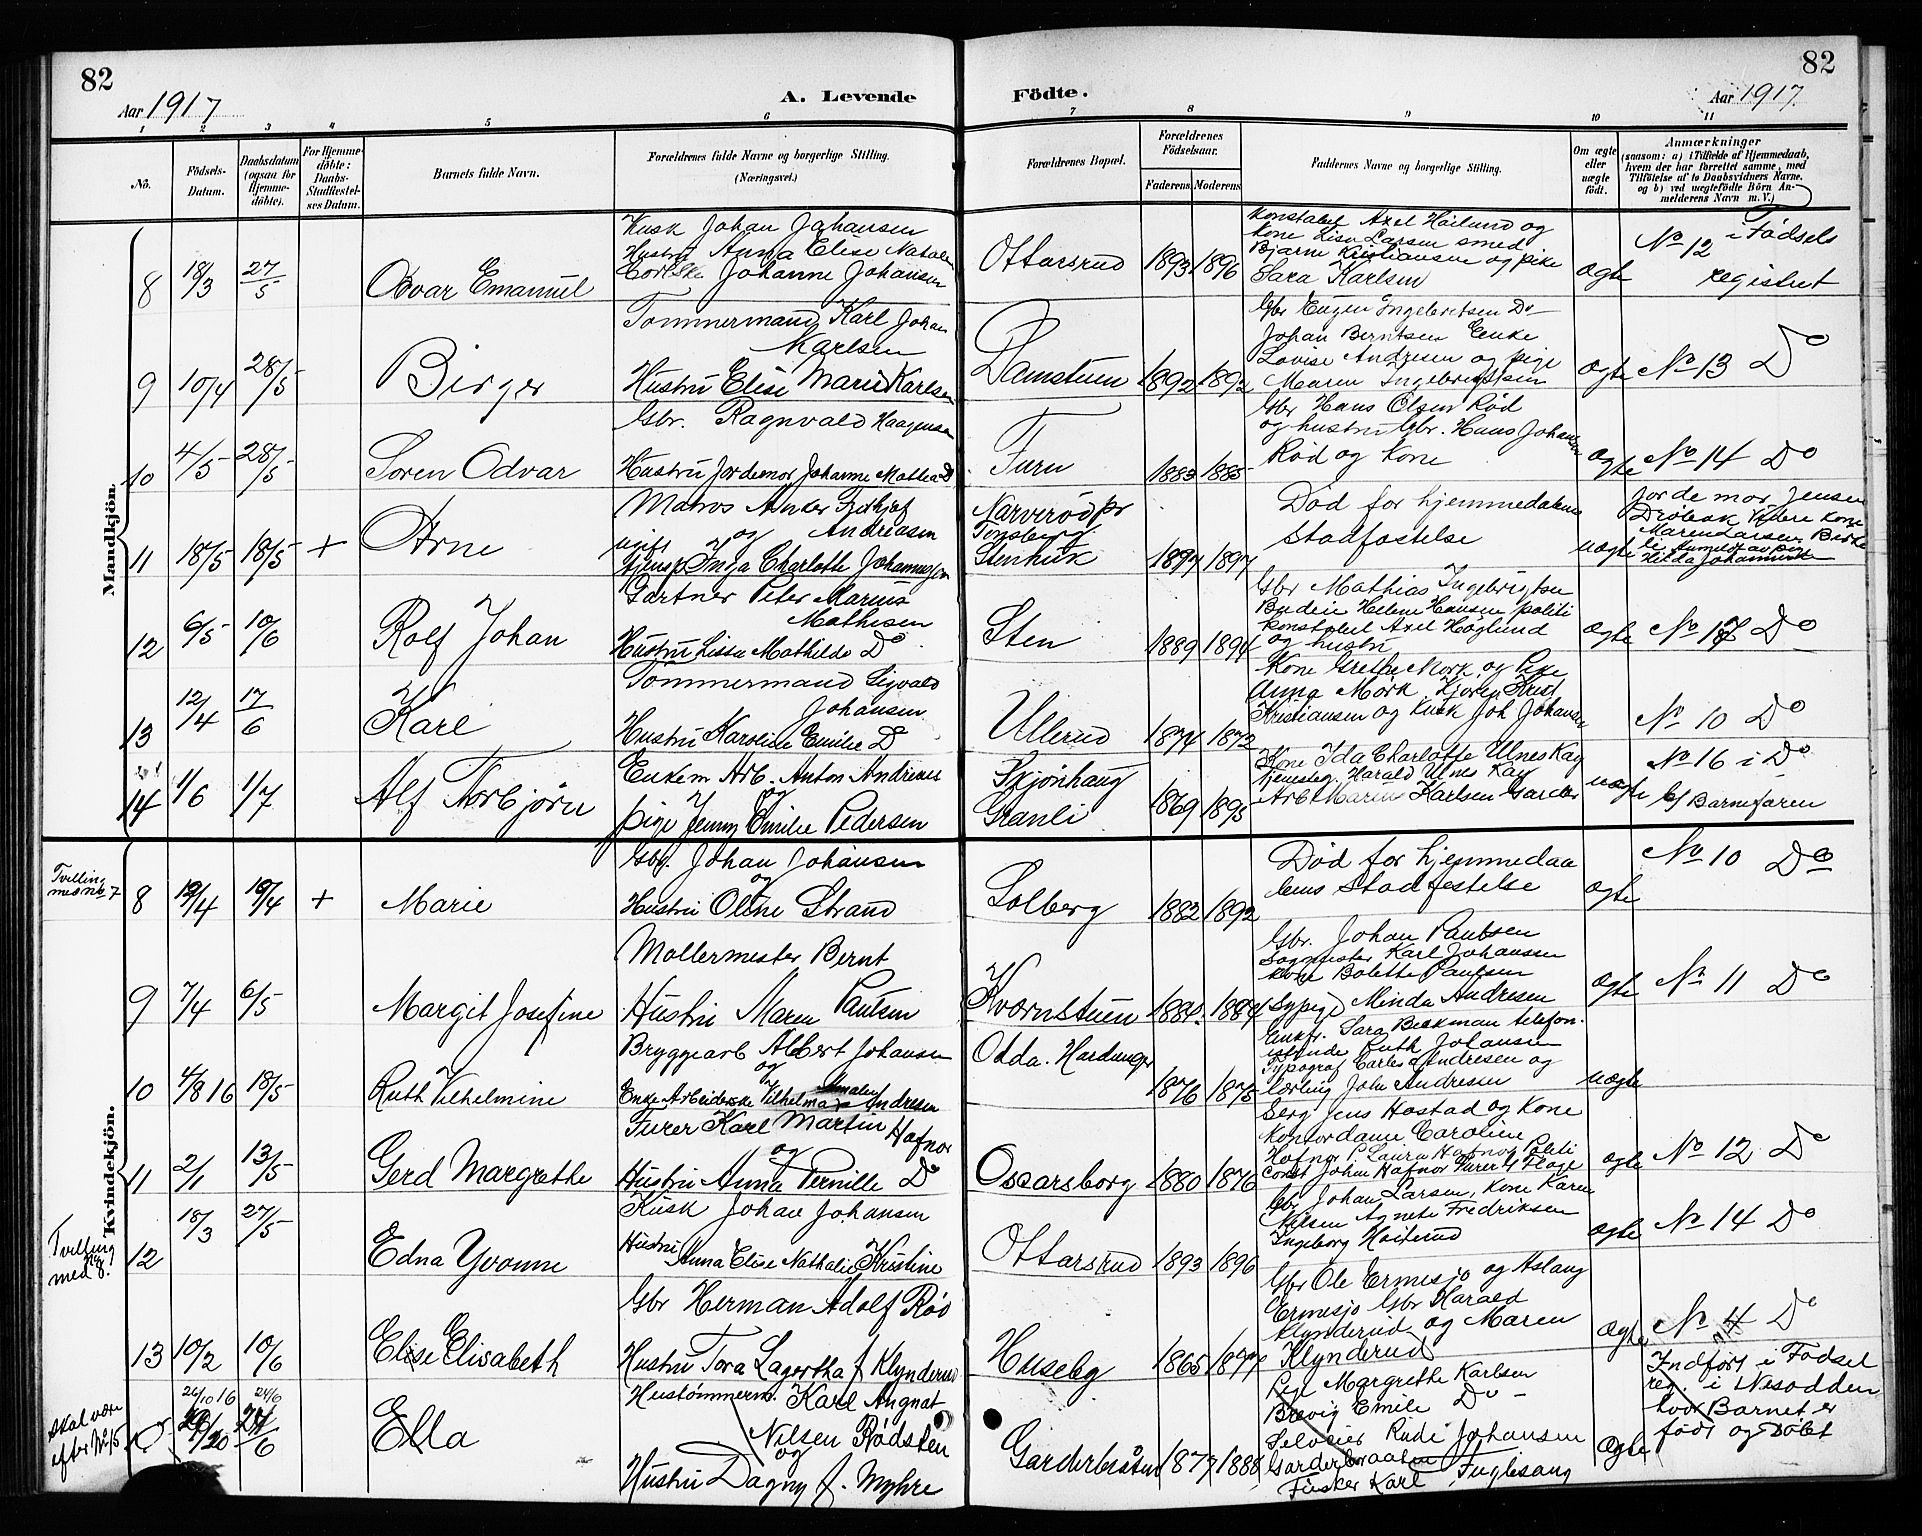 82
Aar 1917
A. Levende
Födte.
82
Aar 1917.
1 2 3 4 5 6 7 8 9 10 11
No.
Födsels-
Datum.
Daabsdatum
(ogsaa for
Hjemme-
döbte).
For Hjemme-
döbte:
Daabs-
Stadfæstel-
ses Datum.
Barnets fulde Navn.
Forældrenes fulde Navne og borgerlige Stilling.
(Næringsvei.)
Forældrenes Bopæl.
Forældrenes
Födselsaar.
Faderens Moderens
Faddernes Navne og borgerlige Stilling.
Om ægte
eller
uægte
födt.
Anmærkninger
(saasom: a) i Tilfælde af Hjemmedaab,
hvem der har forrettet samme, med
Tilföielse af to Daabsvidners Navne,
og b) ved uægtefödte Börn An-
melderens Navn m. V.)
Mandkjön.
8 18/3 27/5
Kusk Johan Johansen
Hustru Anna Elise
Johanne Johansen
Emanuel
Ottarsrud
1893 1896
Konstabel Axel og
Kone Lisa Larsen smed
Bjarne Kristiansen og pike
Sara Karlsen
ægte
No 12 i Fødsels
registret
9 10/4 28/5
Birger
Tømmermand Karl Johan
Karlsen
Hustru Elise Marie Karlsen
Damstuen
1892 1892
Gbr Eugen Ingebretsen Do
Johan Berntsen Enke
Lovise Andresen og pige
Maren Ingebrigtsen
ægte
No 13 Do
10 4/5 28/5
Søren Odvar
Gbr. Ragnvald Haagensen
Hustru Jordemor Johanne Mathea Do
Furu
1883 1885
Gbr Hans Olsen Rød
og hustru Gbr. Hans Johansen
Rød og kone
ægte
No 14 Do
11 18/5 18/5 +
Arne
Matros Anker Fridtjof
og Andreasen
Inga Charlotte Johannessen
Narverød pr
Tønsberg
Stenhuk
1897 1897
Død før hjemmedaabens
stadfæstelse
uægte
Jordemor Jensen
Drøbak
Maren Larsen
Anmeldt av pige
Hilda Johannesen
12 6/5 10/6
Rolf Johan
Gartner Peter Marius
Mathisen
Hustru Lissa Mathilde Do
Sten
1889 1894
Gbr Mathias Ingebrigtsen
Budeie Helene Hansen politi
konstabel Axel Høglund
og hustru
ægte
No 17 Do
13 12/4 17/6
Karl
Tømmermand Sigvald
Johansen
Hustru Karoline Emilie Do
Ullerud
1874 1873
Kone Grethe Mørk og Pike
Anna Mørk
Kristiansen og Kusk Joh Johansen
No 10 Do
14 1/6 1/7
Alf Torbjørn
Enkem Arb. Anton Andreas
og
pige Jenny Emilie Pedersen
Skjønhaug
Granli
1869 1895
Kone Ida Charlotte Ulnes Kay
Harald Ulnes Kay
Arb Marius Karlsen Garder
uægte
No 16 i Do
Barnefaren
Kvindekjön.
Tvilling
med no 7
8 12/4 19/4 +
Marie
Gbr. Johan Johansen
og
Hustru Oline Strand
Solberg
1882 1892
Død før hjemmedaa
bens stadfestelse
ægte
No 10 Do
9 7/4 6/5
Margit Josefine
Møllermester Bernt
Hustru Maren Paulsen
Kværnstuen
1884. 1884
Gbr. Johan Paulsen
Sagmester Karl Johansen
kone Bolette Paulsen
Sypige Minda Andresen
ægte
No 11 Do
10 4/8 16 18/5
Ruth Vilhelmine
Bryggearb Albert Johansen
og
Enke Arbeiderske Vilhelma Amalie Andresen
Odda. Hardanger
1876 1875
Enkefr. Sara Beckman telefon-
istinde Ruth Johansen
Typograf Carl Andresen og
lærling John Andresen
uægte
11 2/1 13/5
Gerd Margrethe
Furer Karl Martin Hafnor
og
Hustru Anna Pernille Do
Oscarsborg
1880 1876
Serg Jens Hostad og Kone
Kontordame Caroline
Hafnor P. Laura Hafnor Politi
const Johan Hafnor Furer
ægte
No 12 Do
Tvilling
med No 8.
12 18/3 27/5
Edna Yvonne
Kusk Johan Johansen
Hustru
Anna Elise Nathalie Kristine
Ottarsrud
1893 1896
Gbr Johan Larsen, kone Karen
Nilsen Agnete Fredriksen
Ingeborg
ægte
No 14 Do
13 10/2 10/6
Elise Elisabeth
Gbr Herman Adolf Rød
Hustru Tora Lagertha f Klynderud
Huseby
1865 1877
Gbr Ole Ermesjø og Aslaug
Ermesjø Gbr Harald
Klynderud og Maren
Klynderud
ægte
No 4 Do
Skal være
efter No 15
26/10 16 24/6
Ella
Karl August
Nilsen Rødsten
og
Hustru Dagny f. Myhre
Garderbråten
1877 1888
Pige Margrethe Karlsen
Brevig Emilie Do
Rudi Johansen
Garderbraaten Fuglesang
Fisker Karl
ægte
Indført i Fødsel
reg. i Nesodden
hvor Barnet er
født og Døbt